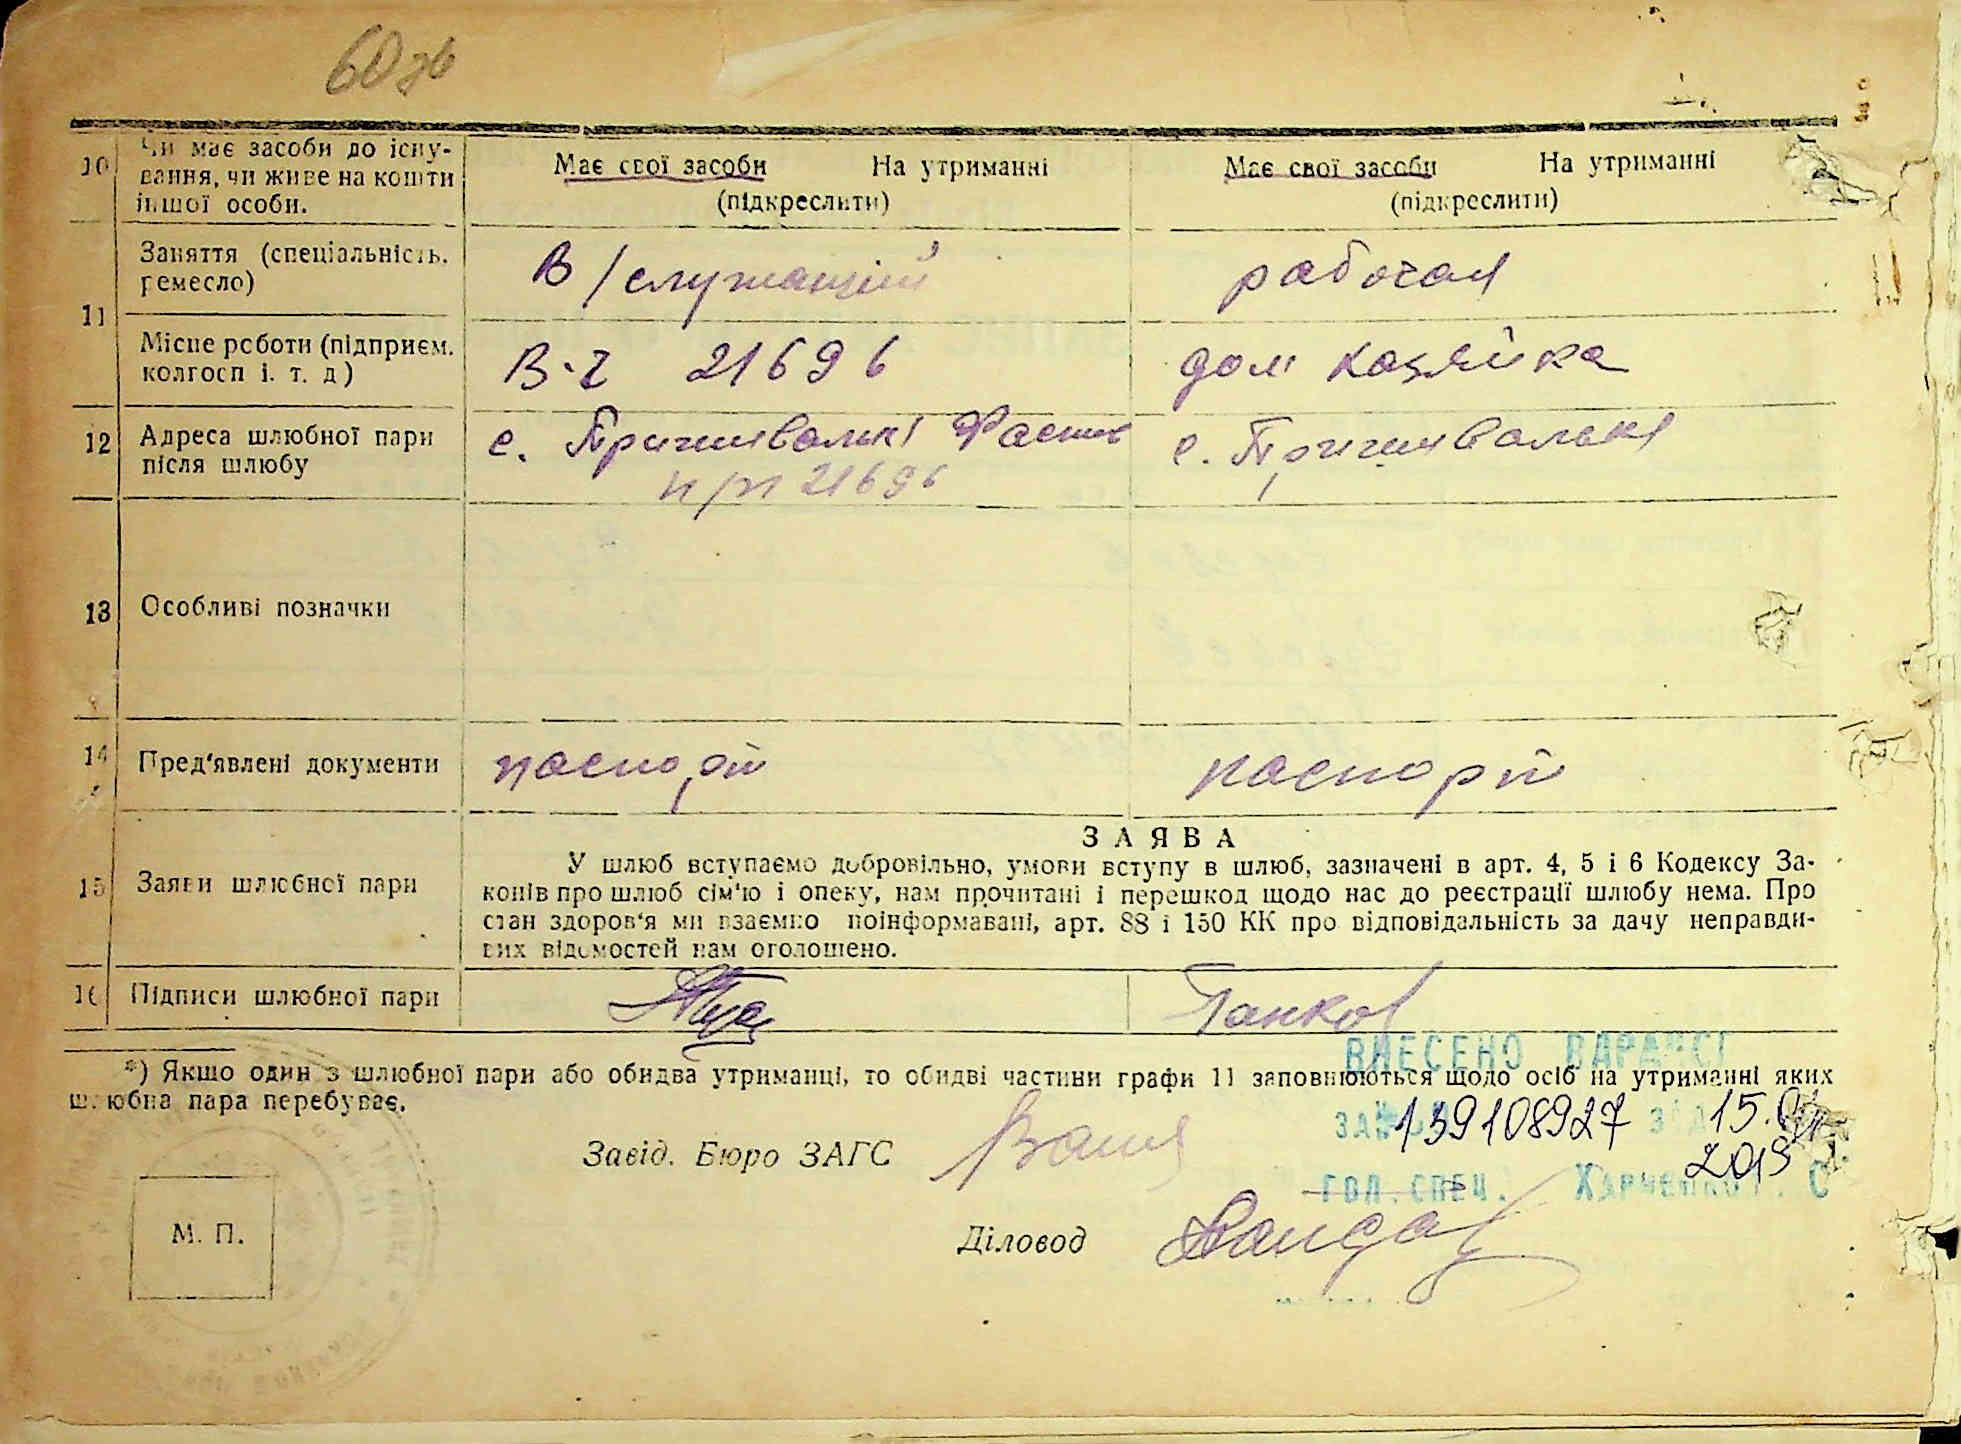 60 зв
10
Чи має засоби до існу-
вання, чи живе на кошти
іншої особи.
Має свої засоби На утриманні
(підкреслити)
Має свої засоби На утриманні
(підкреслити)
11
Заняття (спеціальність,
ремесло)
В/служащий
рабочая
Місце роботи (підприєм.
колгосп і. т. д)
В-ч 21696
дом хозяйка
12
Адреса шлюбної пари
після шлюбу
с. Пришивалькі
п/п 21696
с. Пришивалькі
13
Особливі позначки
14
Пред'явлені документи
паспорт
паспорт
15
Заяви шлюбної пари
ЗАЯВА
У шлюб вступаємо добровільно, умови вступу в шлюб, зазначені в арт. 4, 5 і 6 Кодексу За-
конів про шлюб сім'ю і опеку, нам прочитані і перешкод щодо нас до реєстрації шлюбу нема. Про
стан здоров'я ми взаємно поінформавані, арт. 88 і 150 КК про відповідальність за дачу неправди-
вих відомостей нам оголошено.
16
Підписи шлюбної пари
Панков
*) Якшо один з шлюбної пари або обидва утриманці, то обидві частини графи 11 заповнюються щодо осіб на утриманні яких
шлюбна пара перебуває.
ВНЕСЕНО ДАРАЦСГ
139108927 15.01
2019
ГОЛ.СПЕЦ. Харченко
Завід. Бюро ЗАГС
М. П.
Діловод